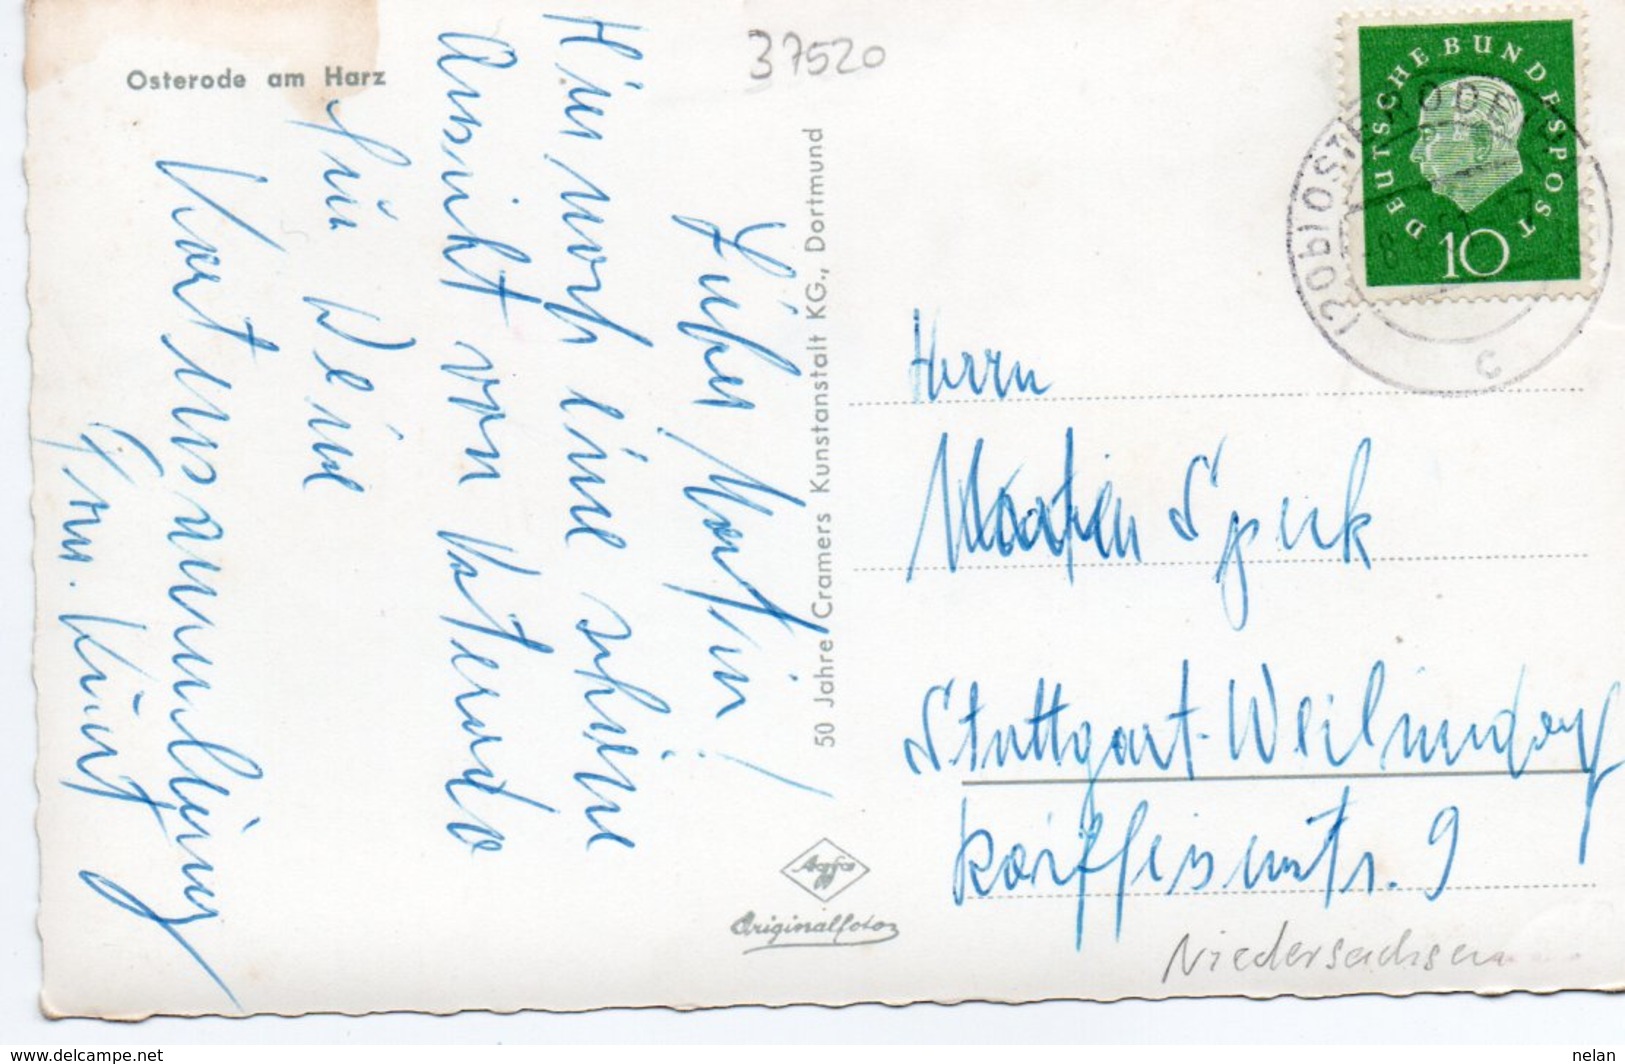 Osterode am Harz
37520
Lieber Martin!
Hier noch eine schöne
Ansicht von Osterode
für Deine
Kartensammlung
50 Jahre Cramers Kunstanstalt KG., Dortmund
Agfa
Originalfoto
DEUTSCHE BUNDESPOST
10
(20b) OSTERODE
c
Herrn
Martin Speck
Stuttgart-Weilimdorf
9
Niedersachsen
www.delcampe.net
nelan